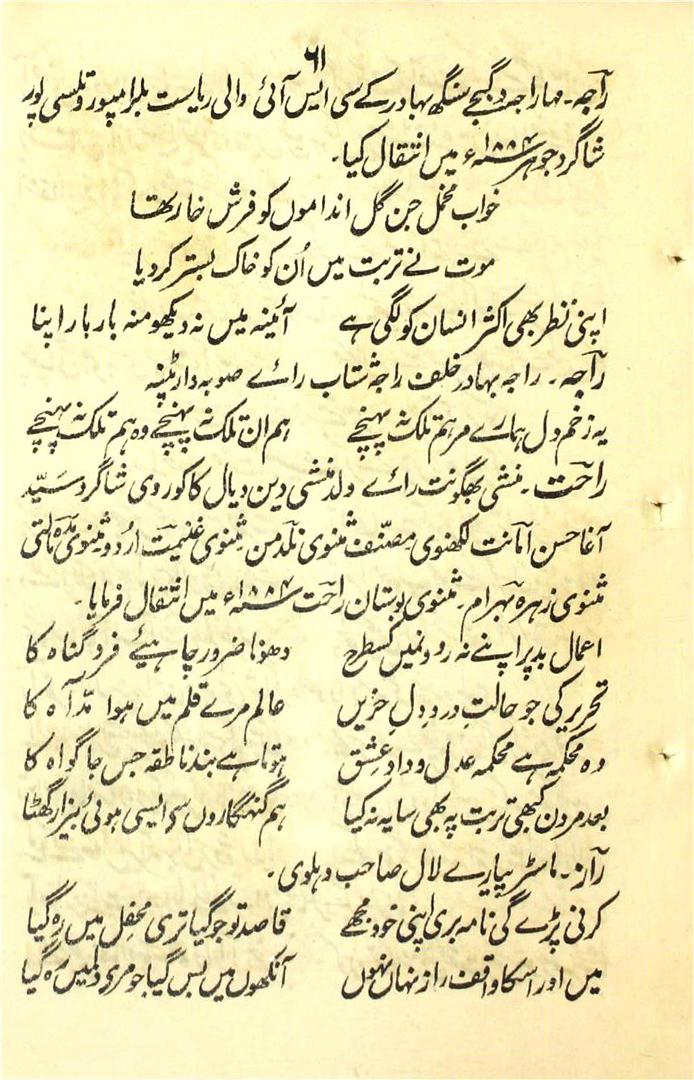 ۶۱
راجہ۔ مہاراجہ دگبجے سنگھ بہادر کے سی ایس آئی والی ریاست بلرامپور و تلسی پور
شاگرد جوہر ۱۸۸۴ء میں انتقال کیا۔
خواب مخمل جن گل انداموں کو فرش خار تھا
موت نے تربت میں اُن کو خاک بستر کر دیا
اپنی نظر بھی اکثر انسان کو لگی ہے آئینہ میں نہ دیکھو منہ بار بار اپنا
راجہ۔ راجہ بہادر خلف راجہ شتاب رائے صوبہ دار پٹنہ
یہ زخم دل ہمارے مرہم تلک نہ پہنچے ہم ان تلک نہ پہنچے وہ ہم تلک نہ پہنچے
راحت۔ منشی بھگونت رائے ولد منشی دین دیال کاکوروی شاگرد سَیّد
آغا حسن امانت لکھنوی مصنّف مثنوی نلدمن۔ مثنوی غنیمت اردو مثنوی مدہ مالتی
مثنوی زہرہ بہرام۔ مثنوی بوستان راحت ۱۸۸۴ء میں انتقال فرمایا۔
اعمال بد پر اپنے نہ روونمیں کسطرح دھونا ضرور چاہیئے فرد گناہ کا
تحریر کی جو حالتِ درد دلِ حزیں عالم مرے قلم میں ہوا مدّ آہ کا
وہ محکمہ ہے محکمہ عدل و دادِ عشق ہوتا ہے بند ناطقہ جس جا گواہ کا
بعد مردن کبھی تربت پہ بھی سایہ نہ کیا ہم گنہگاروں سے ایسی ہوئی بیزار گھٹا
رآز۔ ماسٹر پیارے لال صاحب دہلوی۔
کرنی پڑے گی نامہ بری اپنی خود مجھے قاصد تو جو گیا تری محفل میں رہ گیا
میں اور اسکا واقف راز نہاں نہوں آنکھوں میں بس گیا جو مری دلمیں رہ گیا